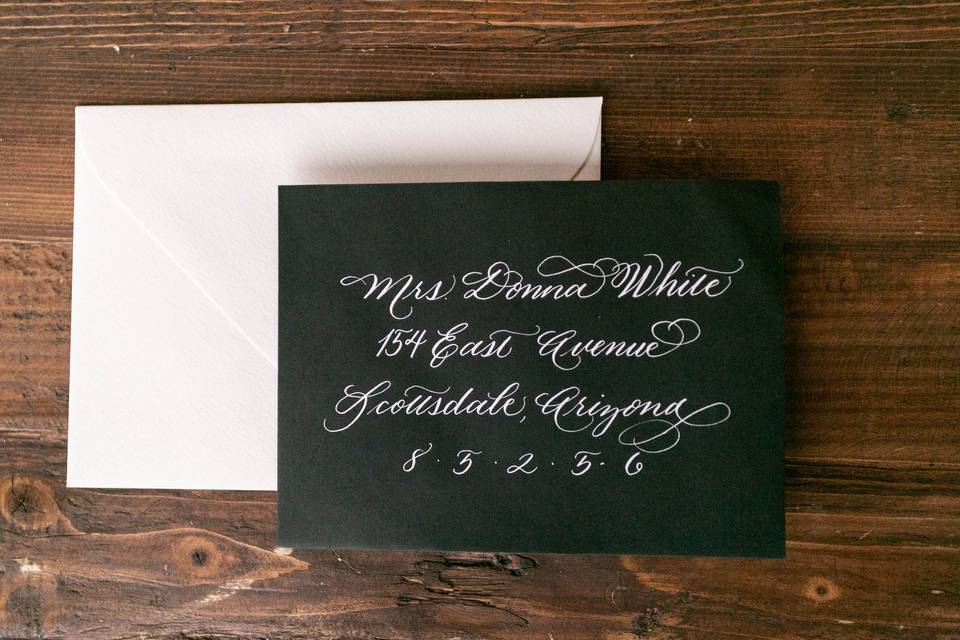 Mrs. Donna White
154 East Avenue
Scottsdale, Arizona
8 · 5 · 2 · 5 · 6